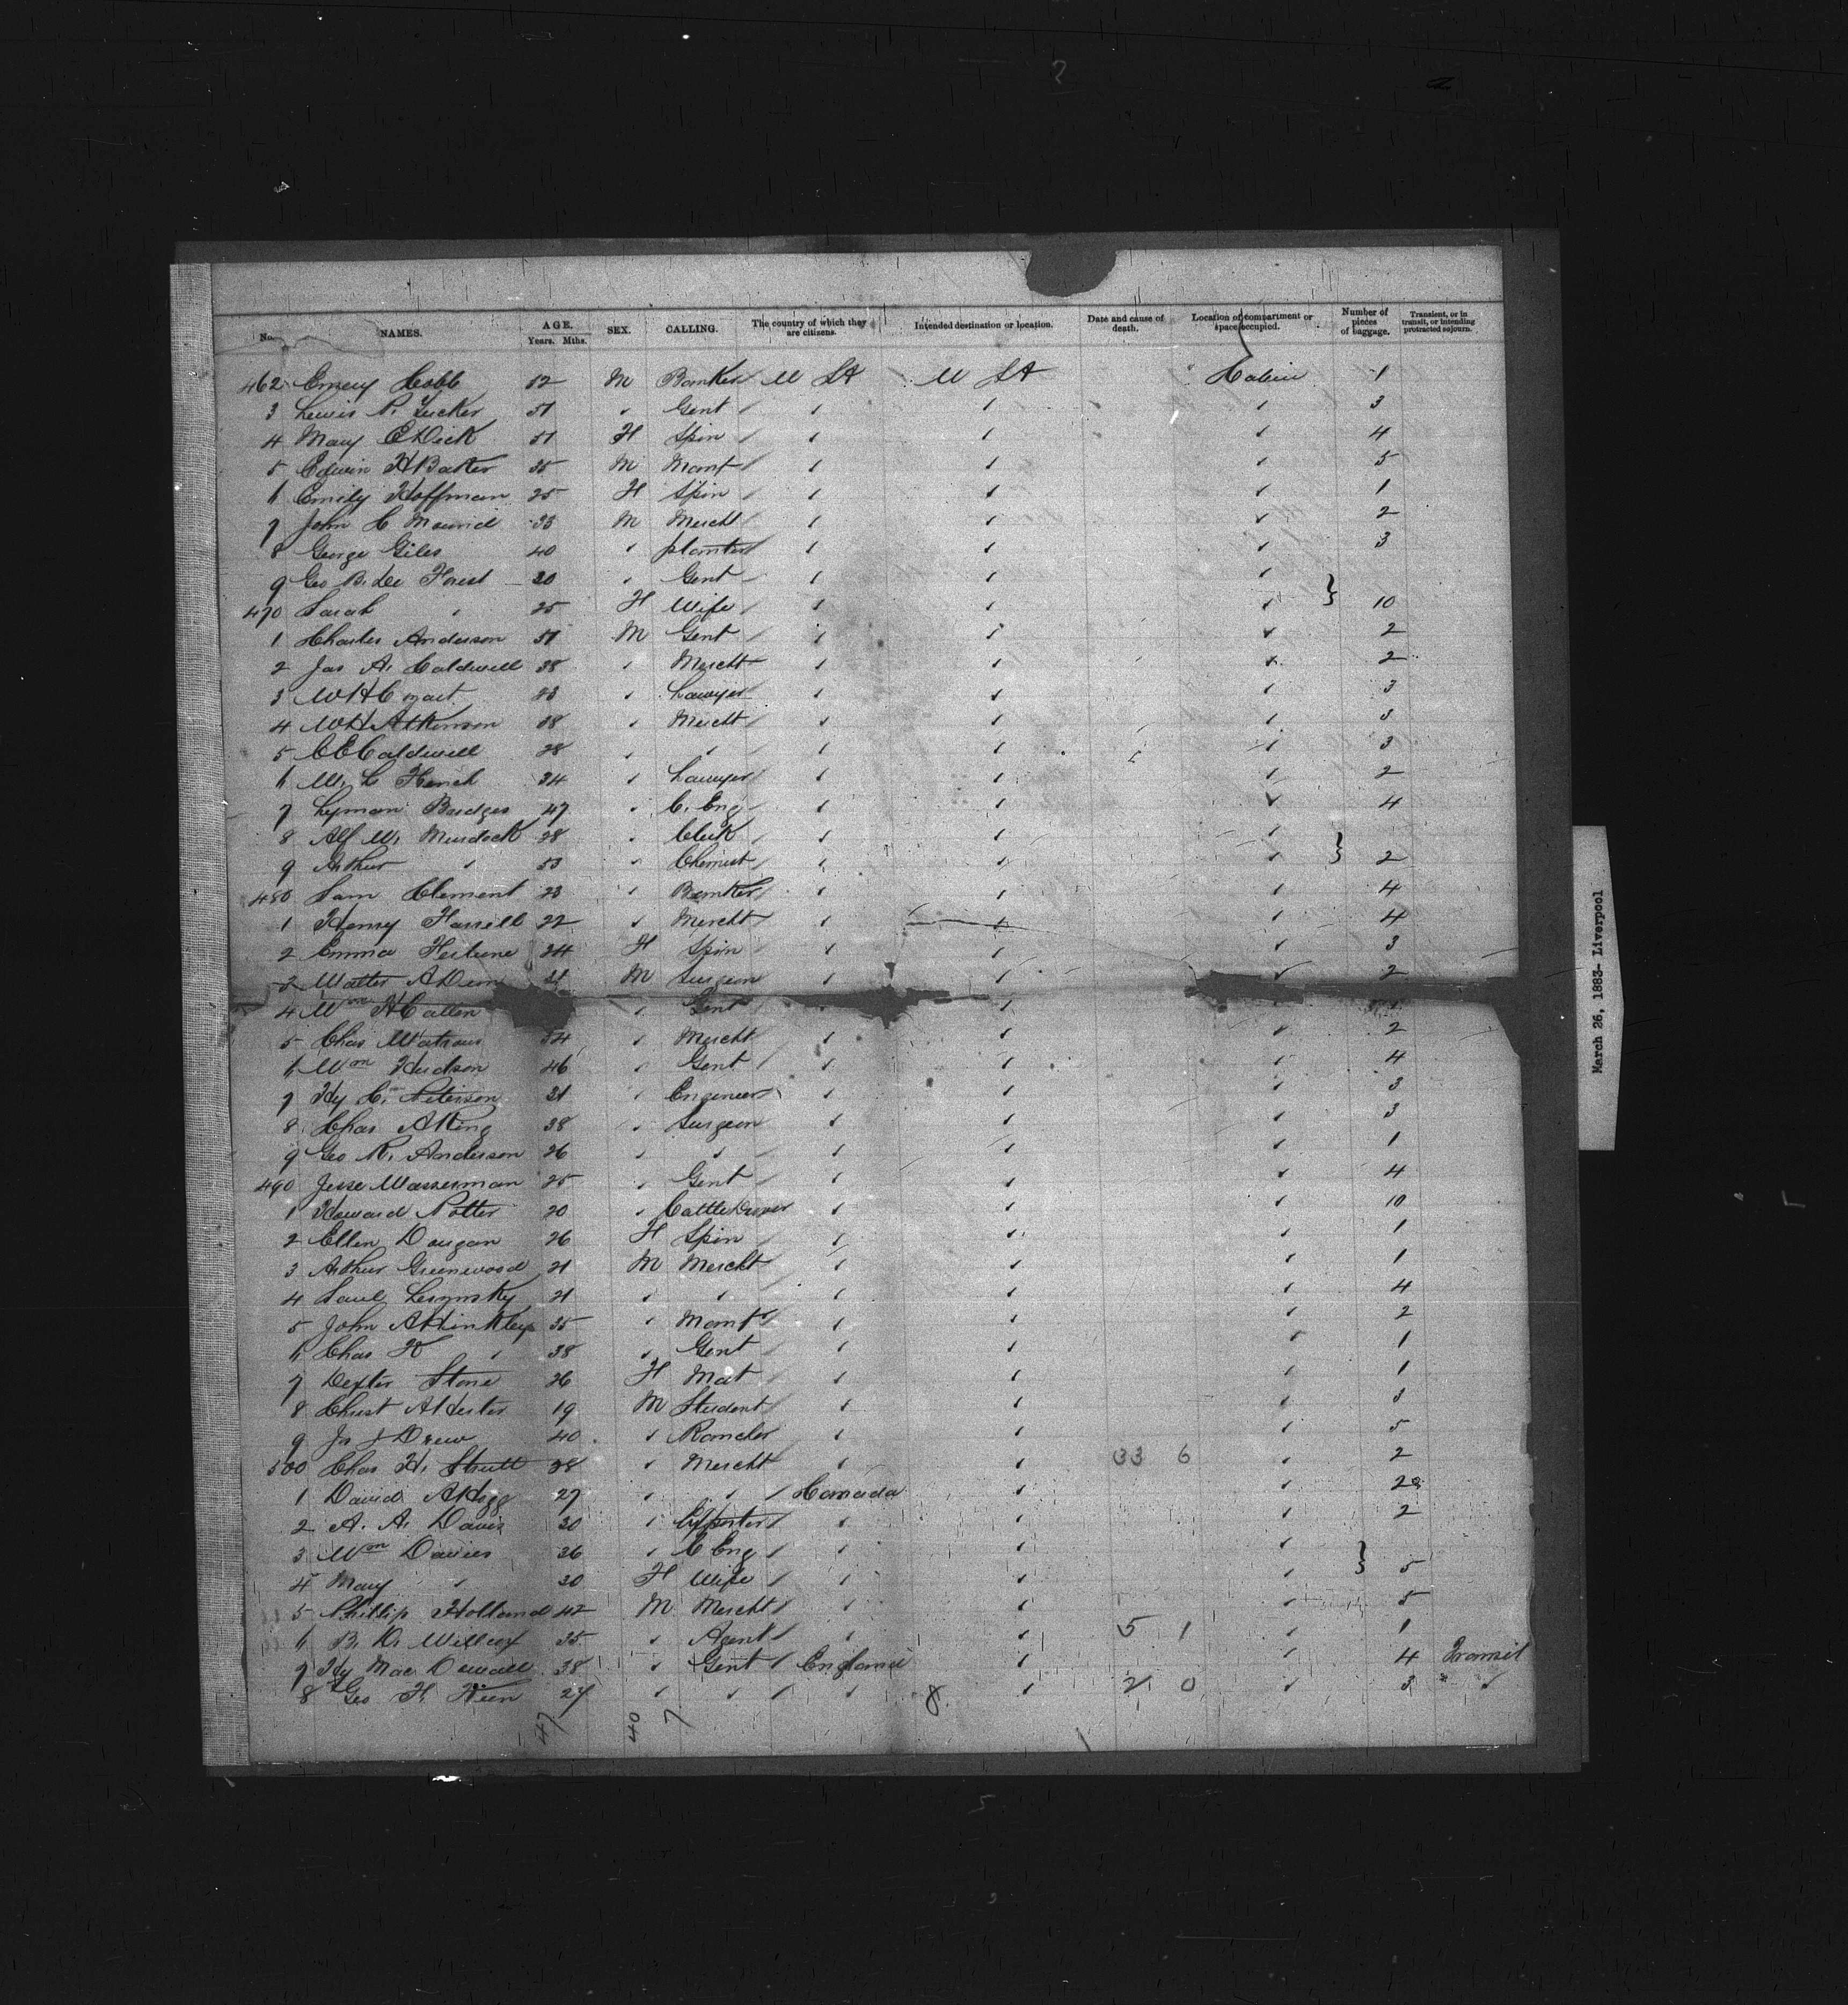 No. NAMES. AGE. Years. Mths. SEX. CALLING. The country of which they are citizens. Intended destination or location. Date and cause of death. Location of compartment or space occupied. Number of pieces of baggage. Transient, or in transit, or intending protracted sojourn.
462 Emery Cobb 52 M Banker U St U St Cabin 1
3 Lewis P. Tucker 51 Gent 3
4 Mary E Dick 51 F Spin 4
5 Edwin H Baker 35 M Manf 5
6 Emily Hoffman 25 F Spin 1
7 John C 33 M Mercht 2
8 George Giles 40 planter 3
9 Geo B. De Forest 30 Gent
470 Sarah " 25 F Wife } 10
1 Charles Anderson 51 M Gent 2
2 Jas A. Caldwell 38 Mercht 2
3 W H 23 Lawyer 3
4 W H Atkinson 38 Mercht 3
5 C E Caldwell 28 " 3
6 34 Lawyer 2
7 Lyman Bridges 47 C. Eng 4
8 Alf W. Murdock 28 Clerk
9 Arthur " 53 Chemist } 2
480 Sam Clement 23 Banker 4
1 Henry Farrell 22 Mercht 4
2 Emma 24 F Spin 3
3 Walter A M Surgeon 2
4 Wm H Gent
5 Chas Watrous 34 Mercht 2
6 Wm Hudson 46 Gent 4
7 Hy C. Peterson 31 Engineer 3
8 Chas A King 38 Surgeon 3
9 Geo R. Anderson 26 " 1
490 Jesse Wasserman 25 Gent 4
1 Howard Potter 20 Cattle Drover 10
2 Ellen Dougan 26 F Spin 1
3 Arthur Greenwood 21 M Mercht 1
4 Saul 21 " 4
5 John A Hinkley 35 Manf 2
6 Chas H " 38 Gent 1
7 Dexter Stone 26 F Mat 1
8 Christ A Hester 19 M Student 3
9 Drew 40 Rancher 5
500 Chas H. 38 Mercht 33 6 2
1 David A Hogg 27 " Canada 2
2 A. A. Davis 30 2
3 Wm Davies 36 C Eng
4 Mary " 30 F Wife } 5
5 Phillip Holland 42 M Mercht 5
6 B. D. Willcox 35 Agent 5 1 1
7 Hy Mac Dowall 38 Gent England 4 Transit
8 Geo H. 27 " 2 0 3 "
47 40 7 8
March 26, 1883- Liverpool